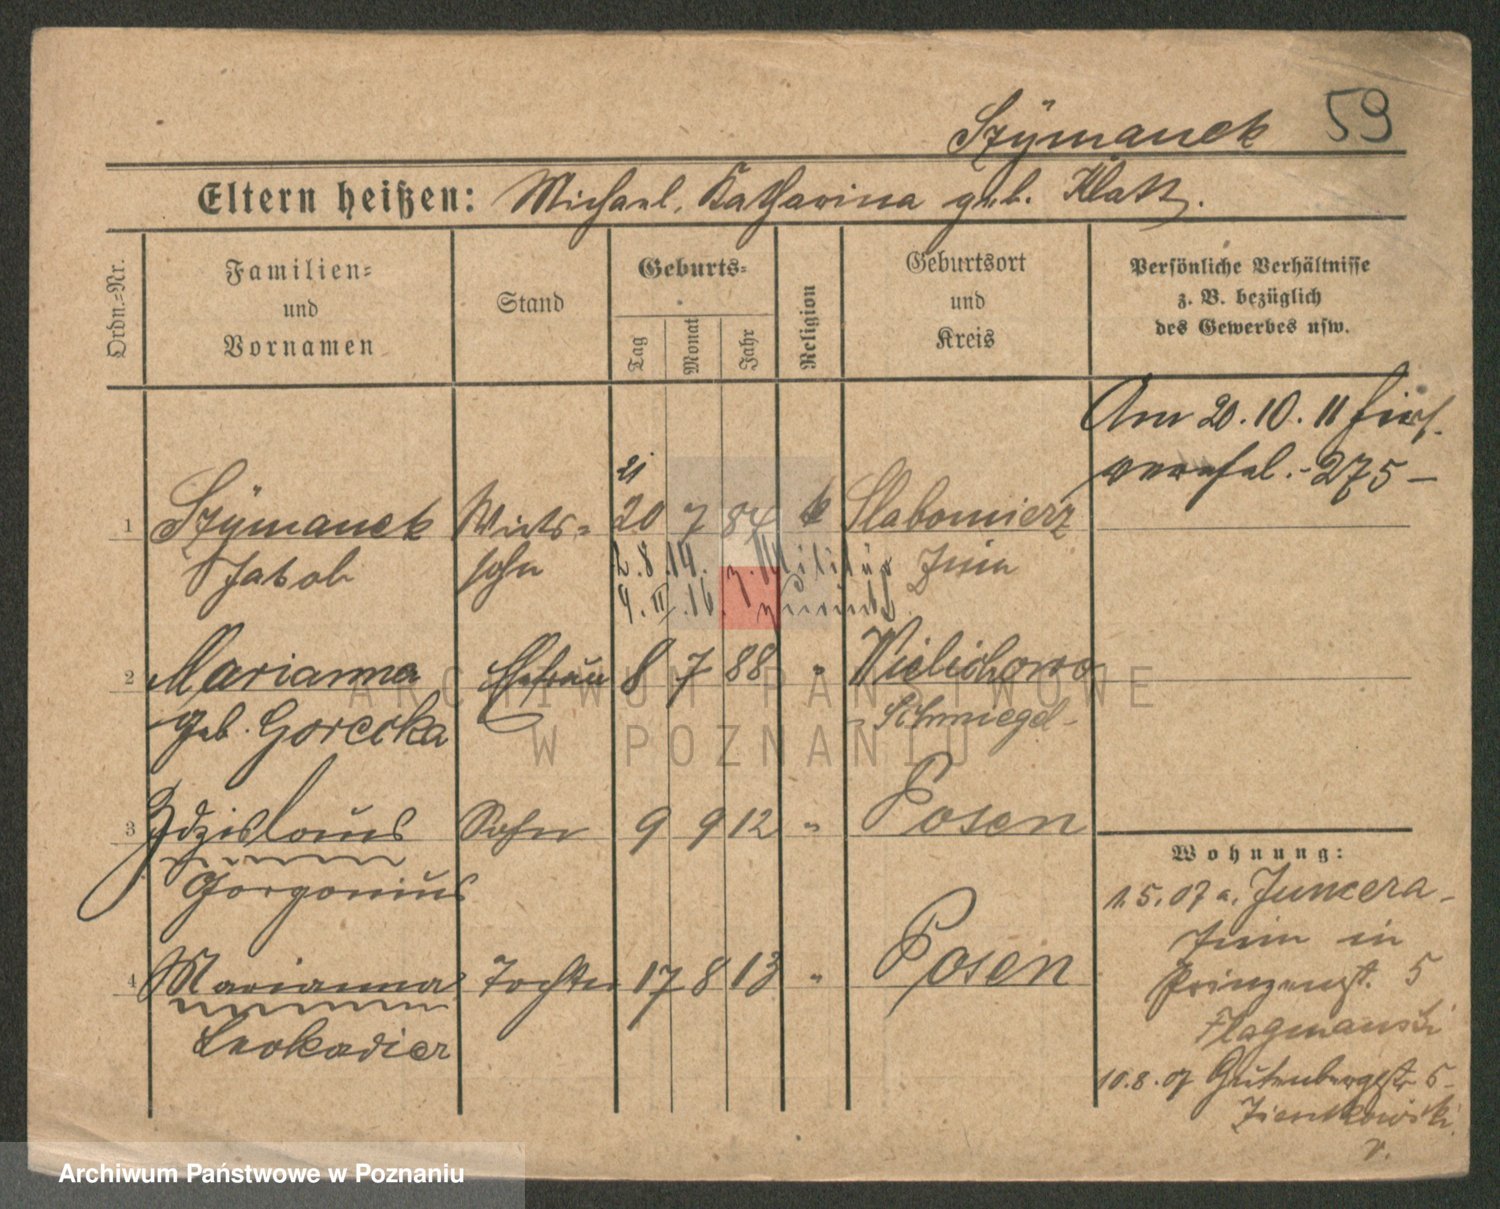 Szÿmanek 59
Eltern heißen: Michael, Katharina geb. Klatt.
Ordn.=Nr.
Familien=
und
Vornamen
Stand
Geburts=
Tag
Monat
Jahr
Religion
Geburtsort
und
Kreis
Persönliche Verhältnisse
z. B. bezüglich
des Gewerbes usw.
Am 20.10.11 hier
275 –
21
1 Szÿmanek Wirts= 20 7 84 k Slabomierz
Jakob sohn Znin
2.8.14. z. Militär
4.II.16.
2 Marianna Ehefrau 8 7 88 " Wielichowo
geb. Gorecka Schmiegel
3 Zdzislaus Sohn 9 9 12 " Posen
Gorgonius
4 Marianna Tochter 17 8 13 " Posen
Leokadia
Wohnung:
1.5.07 a.
Znin in
Prinzenst. 5
10.8.07 Gutenbergstr 5
Zientkowski
ARCHIWUM PAŃSTWOWE
W POZNANIU
Archiwum Państwowe w Poznaniu